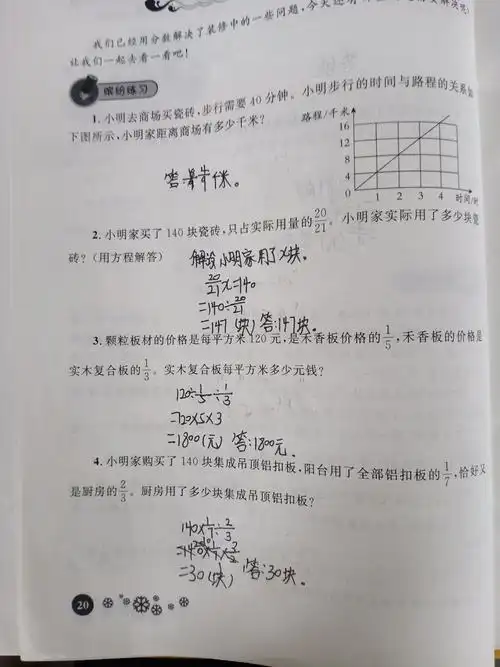 我们已经用分数解决了装修中的一些问题,今天还
让我们一起去看一看吧!
缤纷练习
1.小明去商场买瓷砖,步行需要40分钟。小明步行的时间与路程的关系如
下图所示,小明家距离商场有多少千米?
路程/千米
16
12
8
4
0 1 2 3 4 时间/时
2.小明家买了140块瓷砖,只占实际用量的20/21。小明家实际用了多少块瓷
砖?(用方程解答)
解设小明家用了x块。
20/21x=140
=140÷20/21
=147(块) 答:147块。
3.颗粒板材的价格是每平方米120元,是禾香板价格的1/5,禾香板的价格是
实木复合板的1/3。实木复合板每平方米多少元钱?
120÷1/5÷1/3
=120×5×3
=1800(元) 答:1800元.
4.小明家购买了140块集成吊顶铝扣板,阳台用了全部铝扣板的1/7,恰好又
是厨房的2/3。厨房用了多少块集成吊顶铝扣板?
140×1/7÷2/3
=30(块) 答:30块.
20